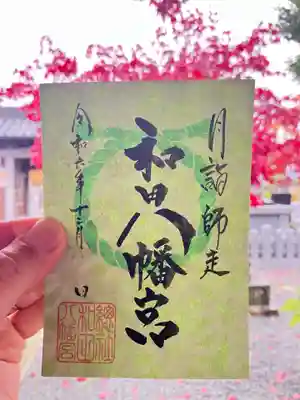 月詣師走
和田八幡宮
令和六年十二月　日
總社
和田
八幡宮